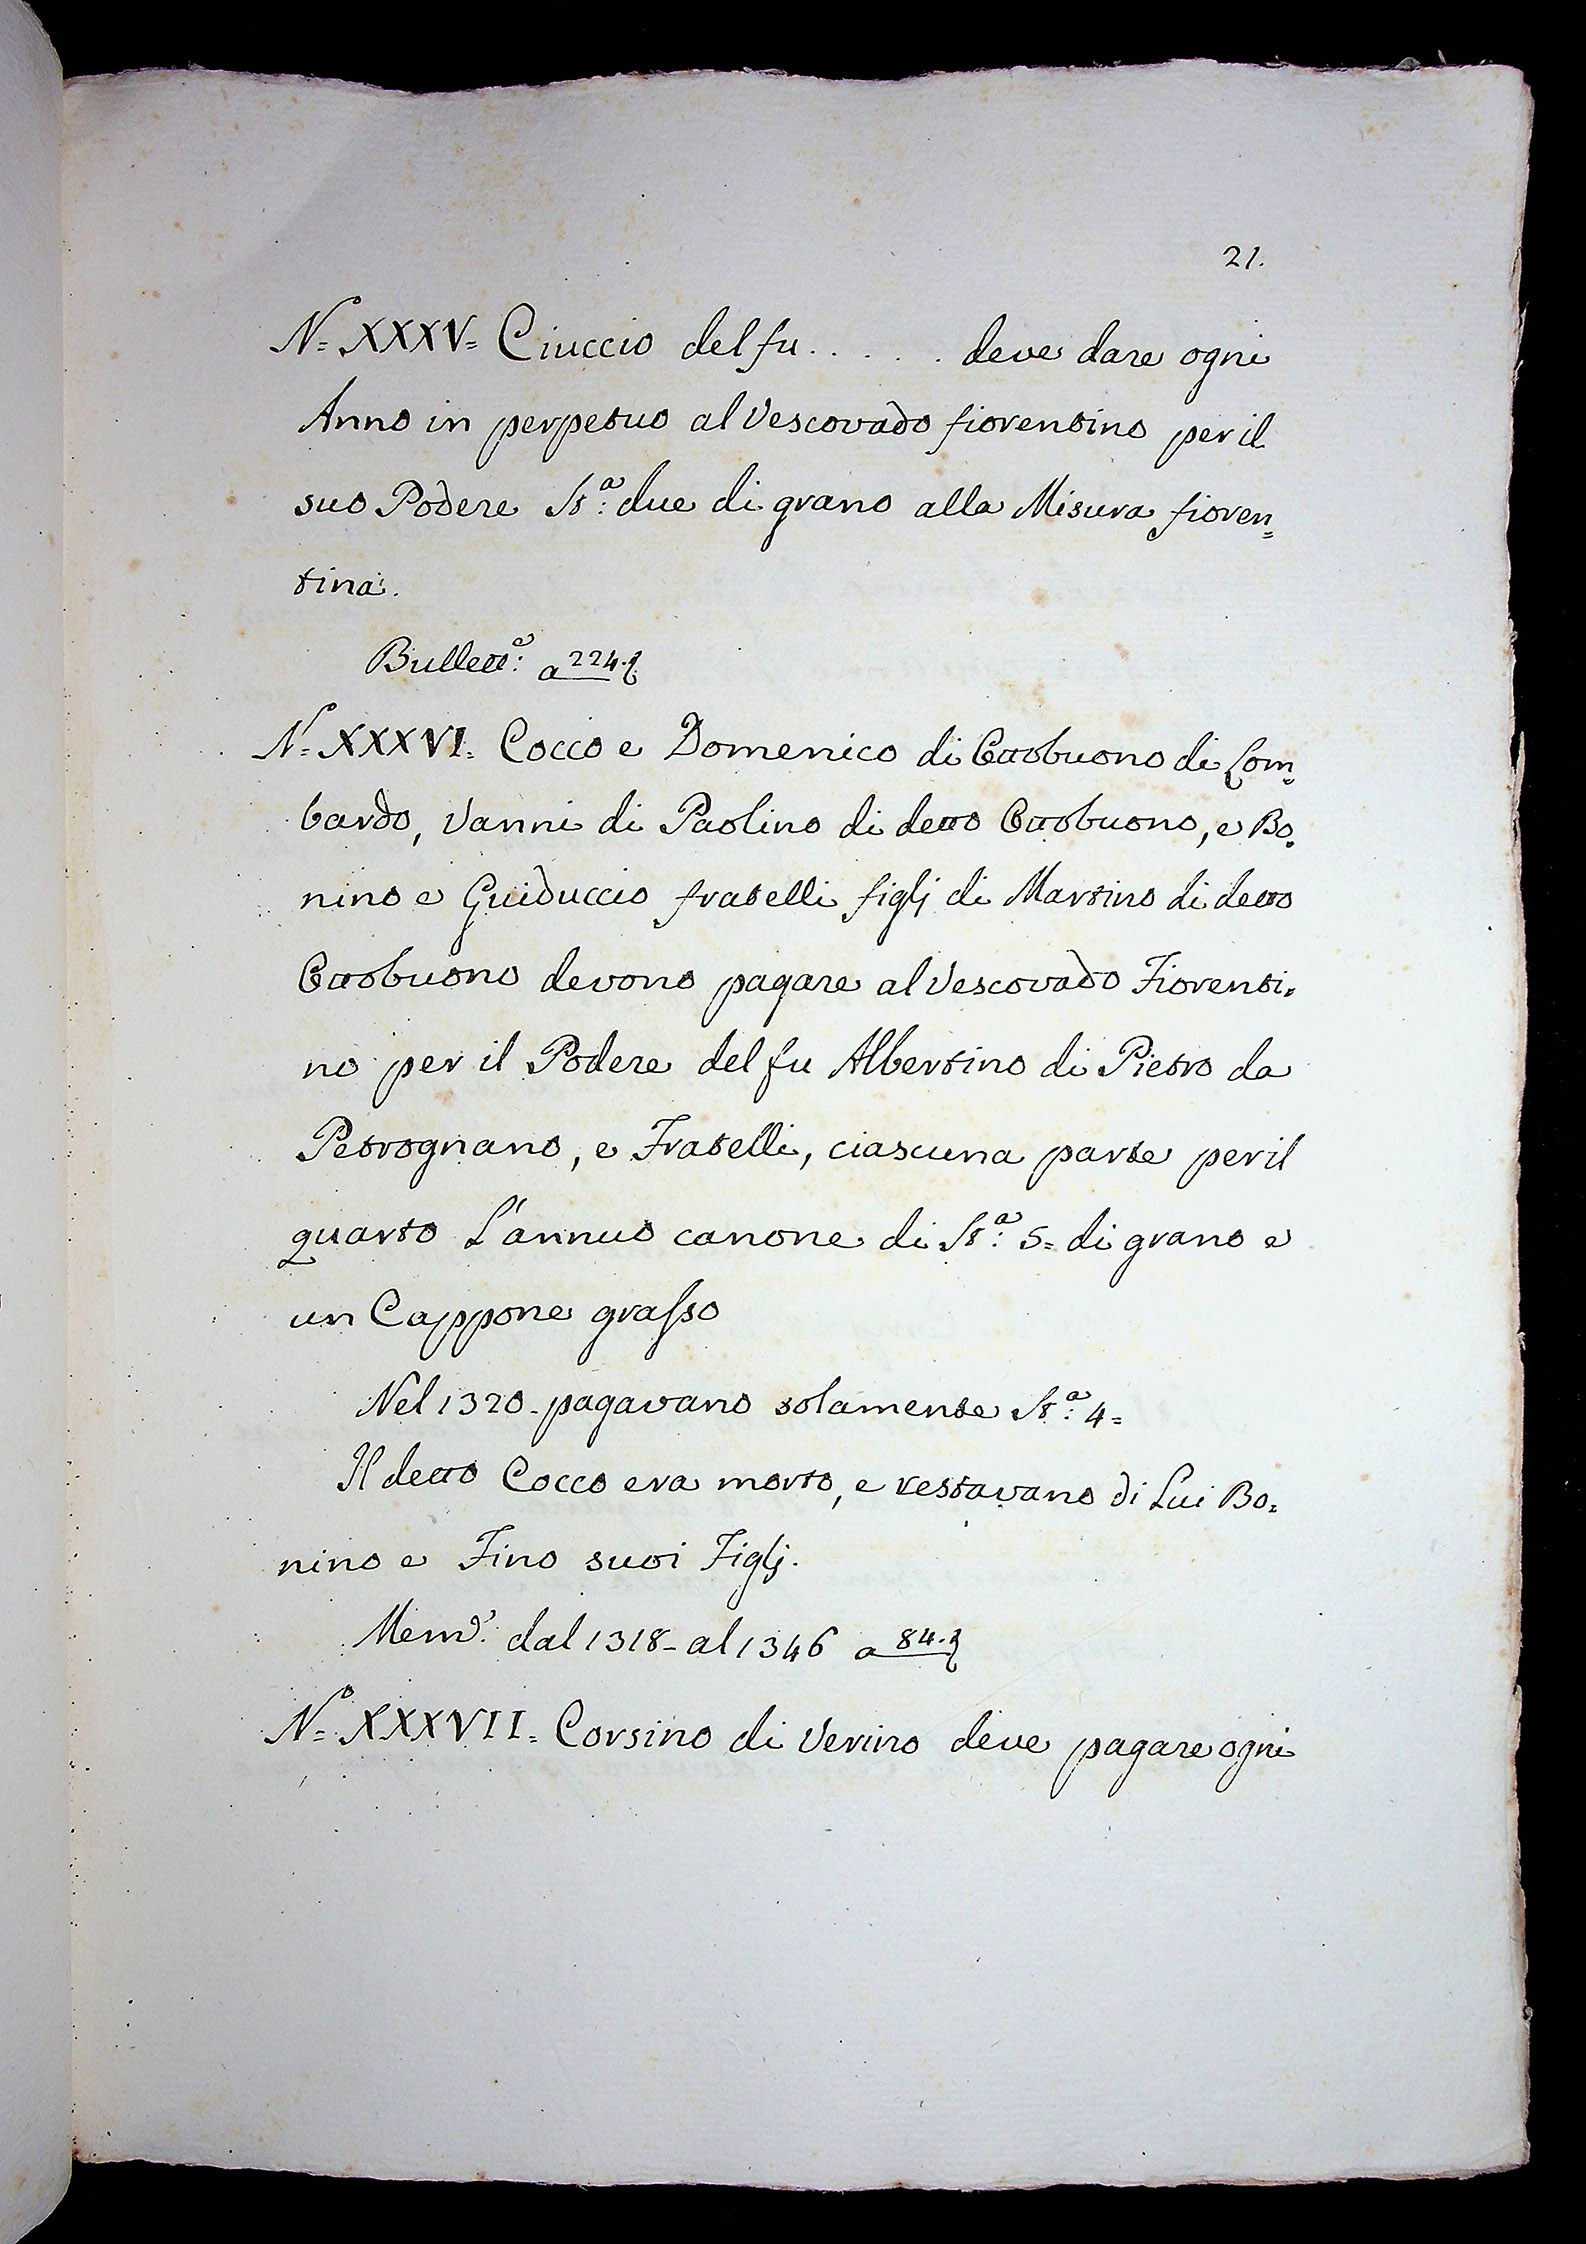 21.
N.º XXXV= Ciuccio del fu . . . . . deve dare ogni
Anno in perpetuo al Vescovado fiorentino per il
suo Podere St.ª due di grano alla Misura fioren=
tina.
Bullett.e: a 224.
N.º XXXVI= Cocco e Domenico di Ottobuono di Lom=
bardo, Vanni di Paolino di detto Ottobuono, e Bo=
nino e Guiduccio fratelli figlj di Martino di detto
Ottobuono devono pagare al Vescovado Fiorenti=
no per il Podere del fu Albertino di Pietro da
Petrognano, e Fratelli, ciascuna parte per il
quarto L'annuo canone di St.ª: 5= di grano e
un Cappone grasso
Nel 1320- pagavano solamente St.ª: 4=
Il detto Cocco era morto, e restavano di Lui Bo=
nino e Fino suoi Figlj.
Mem.e dal 1318- al 1346 a 84.
N.º XXXVII= Corsino di Verino deve pagare ogni